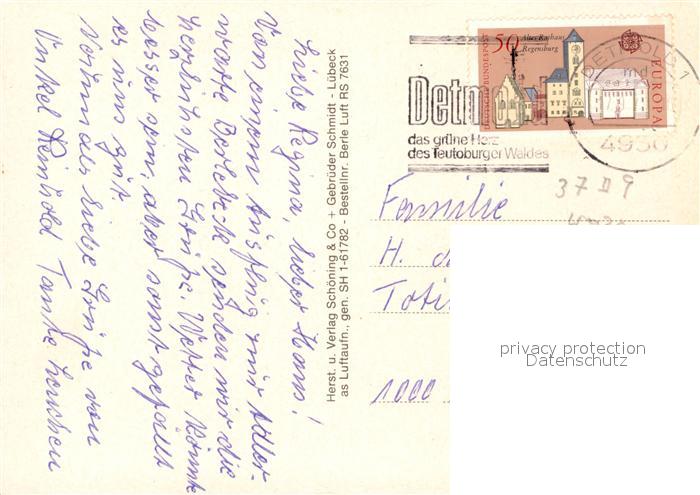 Liebe Regina, lieber Hans!
Von einem Ausflug zur Adler-
warte Berlebeck senden wir die
herzlichsten Grüße. Wetter könnte
besser sein, aber sonst gefällt
es uns gut.
Nochmals liebe Grüße von
Onkel Reinhold Tante
Herst. u. Verlag Schöning & Co + Gebrüder Schmidt - Lübeck
as Luftaufn., gen. SH 1-61782 - Bestellnr. Berle Luft RS 7631
50 Altes Rathaus
Regensburg
DEUTSCHE BUNDESPOST
EUROPA
DETMOLD 1
md
4930
Detmold
das grüne Herz
des Teutoburger Waldes
37 II 9
Familie
H.
1000
privacy protection
Datenschutz